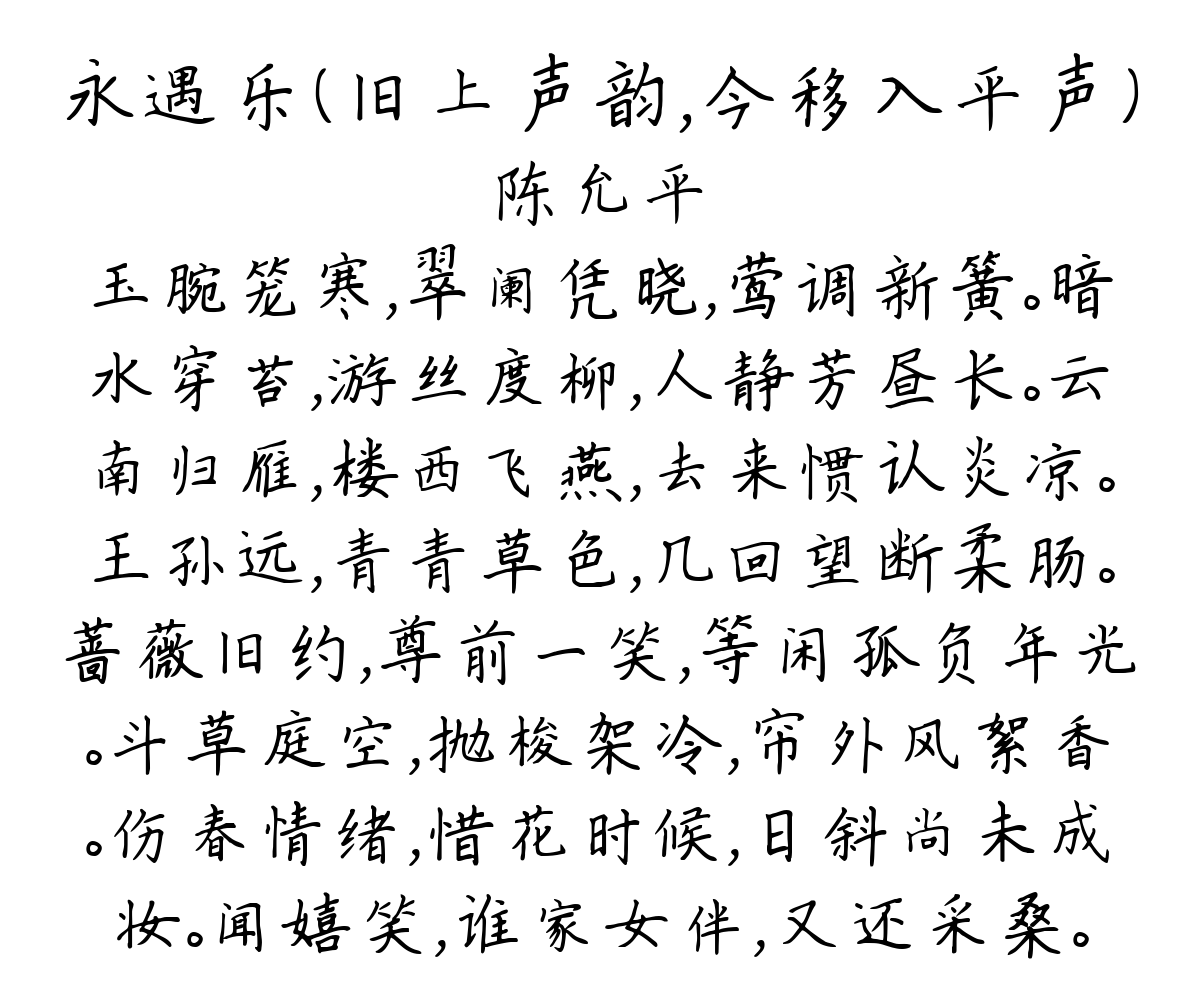 永遇乐(旧上声韵,今移入平声)
陈允平
玉腕笼寒,翠阑凭晓,莺调新簧。暗
水穿苔,游丝度柳,人静芳昼长。云
南归雁,楼西飞燕,去来惯认炎凉。
王孙远,青青草色,几回望断柔肠。
蔷薇旧约,尊前一笑,等闲孤负年光
。斗草庭空,抛梭架冷,帘外风絮香
。伤春情绪,惜花时候,日斜尚未成
妆。闻嬉笑,谁家女伴,又还采桑。